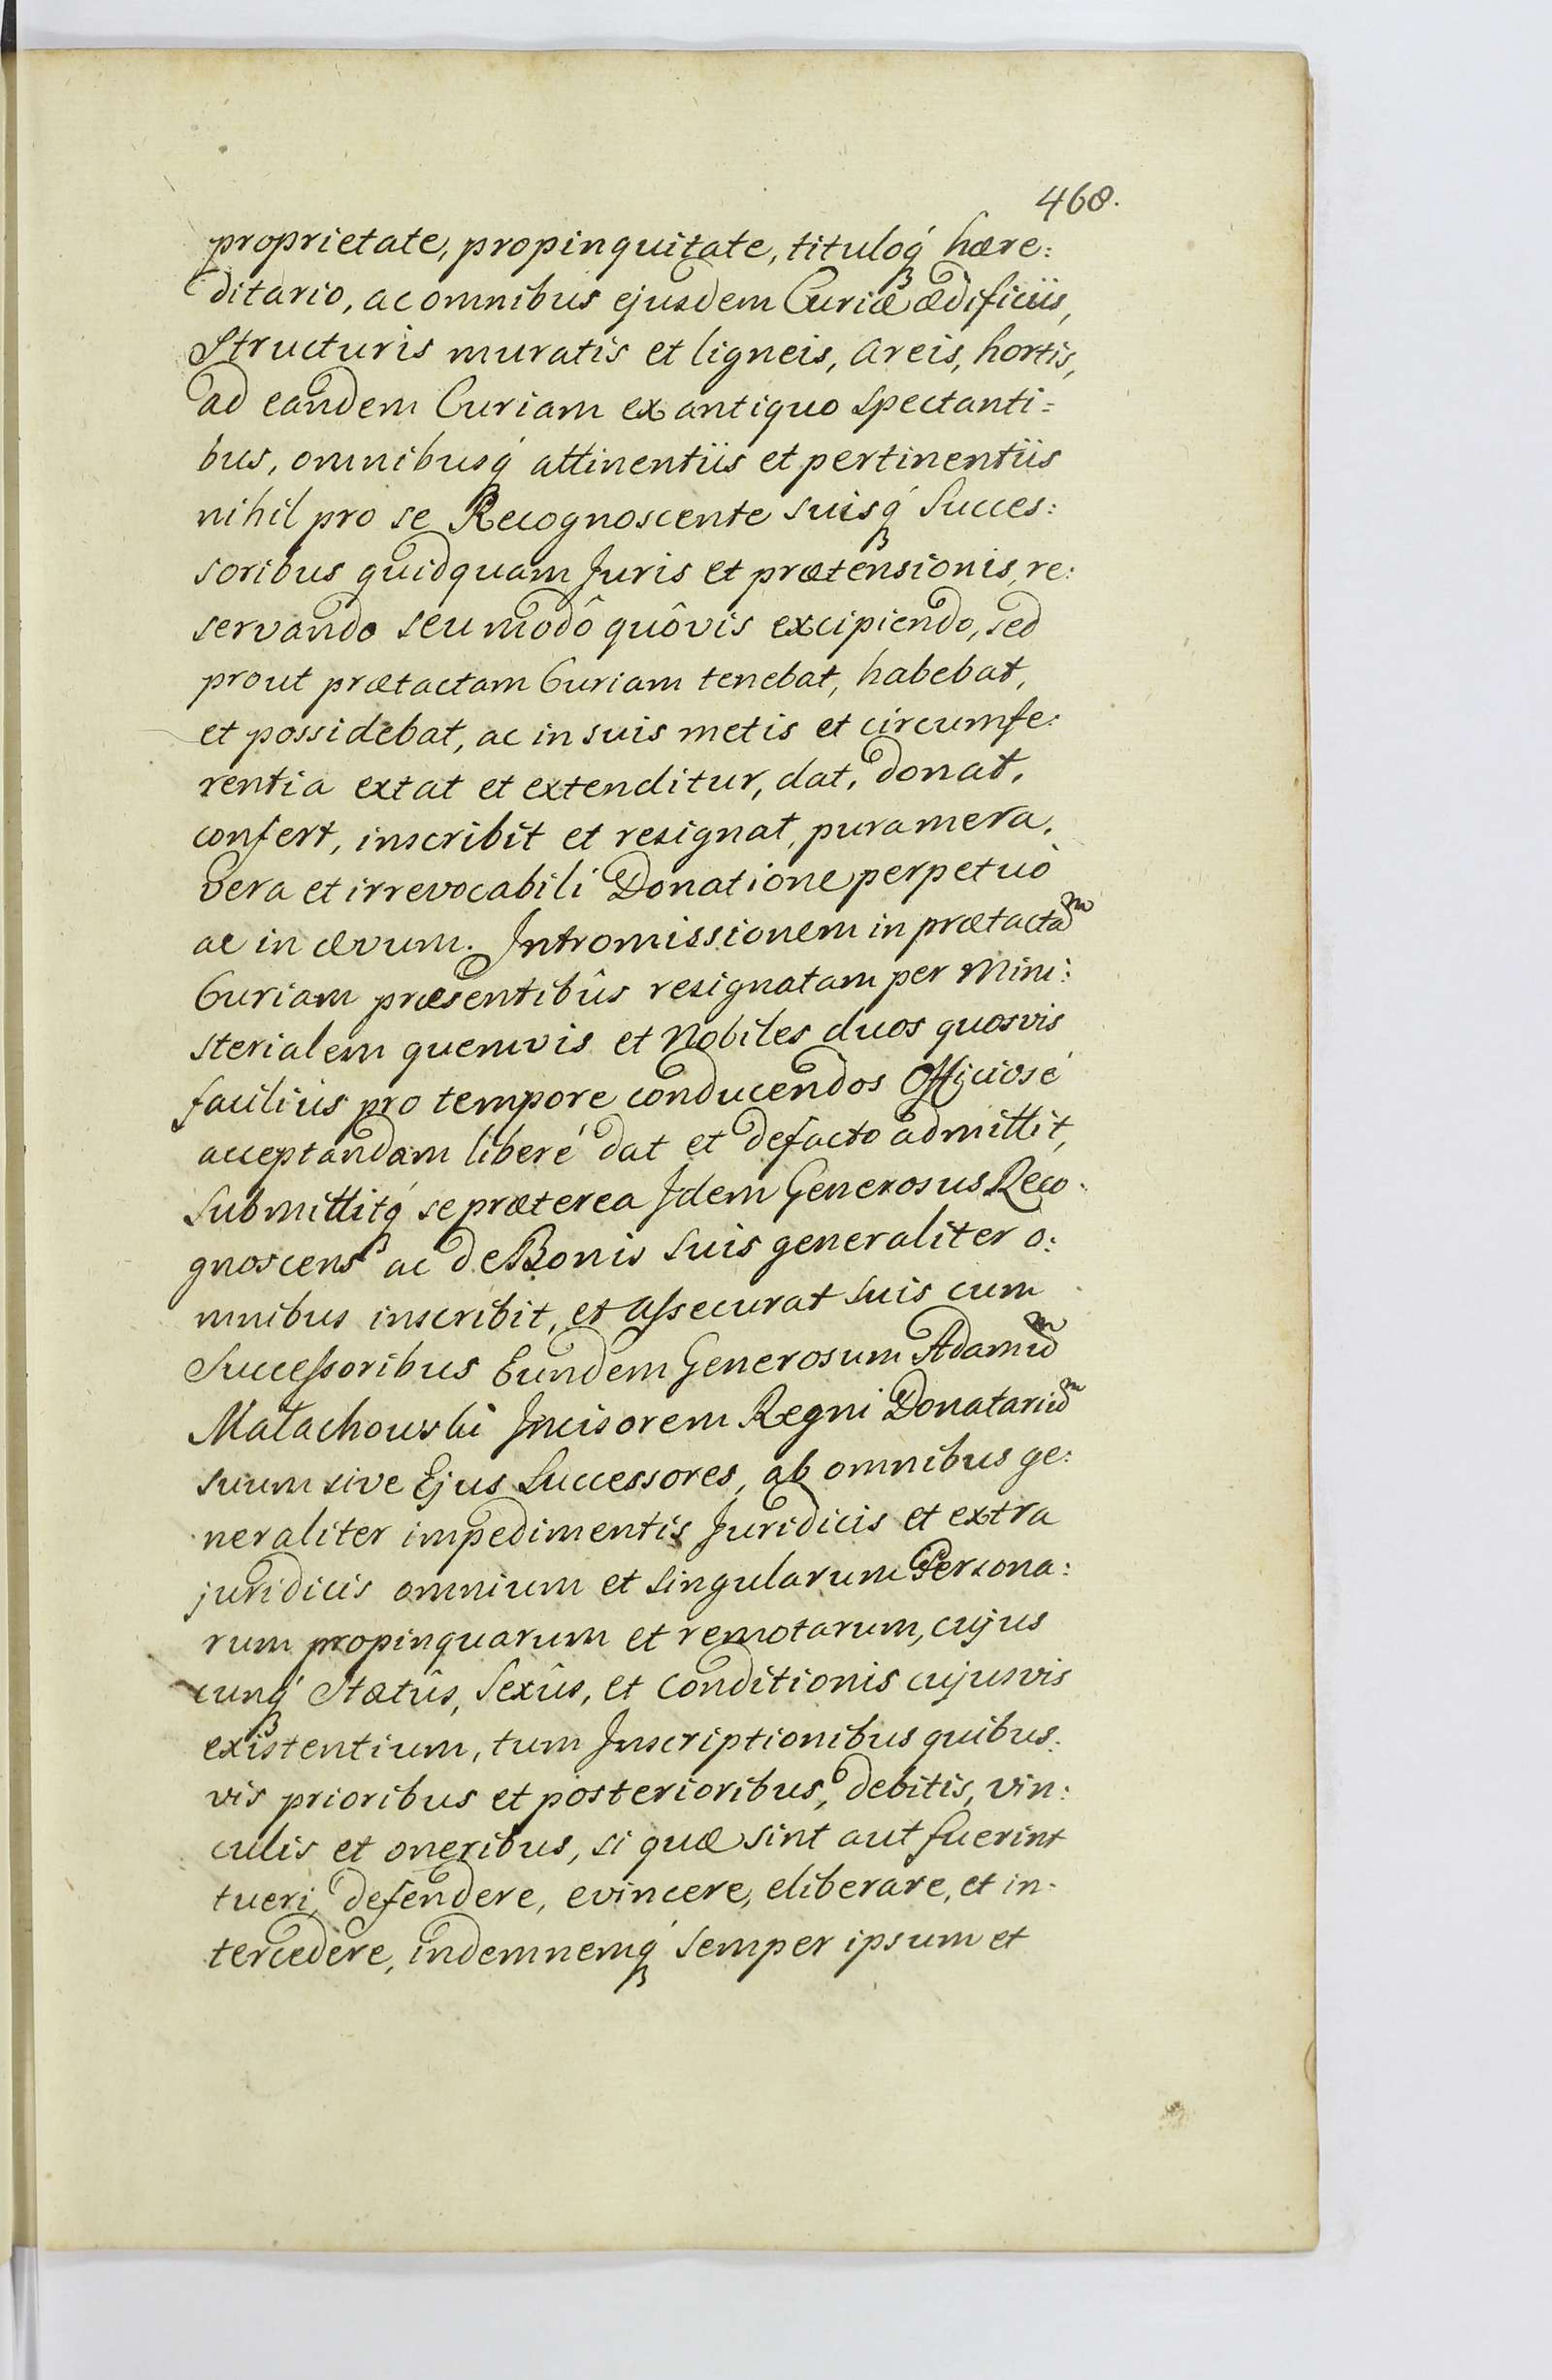 468.
proprietate, propinquitate, tituloq́ hære:
ditario, ac omnibus ejusdem Curiæ ædificiis,
Structuris muratis et ligneis, areis, hortis,
ad eandem Curiam ex antiquo spectanti:
bus, omnibusq́ attinentiis et pertinentiis
nihil pro se Recognoscente suisq́ Succes:
soribus quidquam Juris et prætensionis re:
servando seu modô quôvis excipiendo, sed
prout prætactam Curiam tenebat, habebat,
et possidebat, ac in suis metis et circumfe:
rentia extat et extenditur, dat, donat,
confert, inscribit et resignat, pura mera,
vera et irrevocabili Donatione perpetuò
ac in ævum. Intromissionem in prætactaᵐ
Curiam præsentibûs resignatam per Mini:
sterialem quemvis et Nobiles duos quosvis
facilius pro tempore conducendos Officiosé
acceptandam liberé dat et defacto admittit,
Submittitq́ se præterea Idem Generosus Reco:
gnoscens ac de Bonis suis generaliter o:
mnibus inscribit, et assecurat suis cum
Successoribus Eundem Generosum Adamuᵐ
Małachowski Incisorem Regni Donatariuᵐ
suum sive Ejus Successores, ab omnibus ge:
neraliter impedimentis Juridicis et extra
juridicis omnium et singularum Persona:
rum propinquarum et remotarum, cujus
cunq́ Statûs, Sexûs, et Conditionis cujusvis
existentium, tum Inscriptionibus quibus:
vis prioribus et posterioribus, debitis, vin:
culis et oneribus, si quæ sint aut fuerint
tueri, defendere, evincere, eliberare, et in:
tercedere, indemnemq́ semper ipsum et